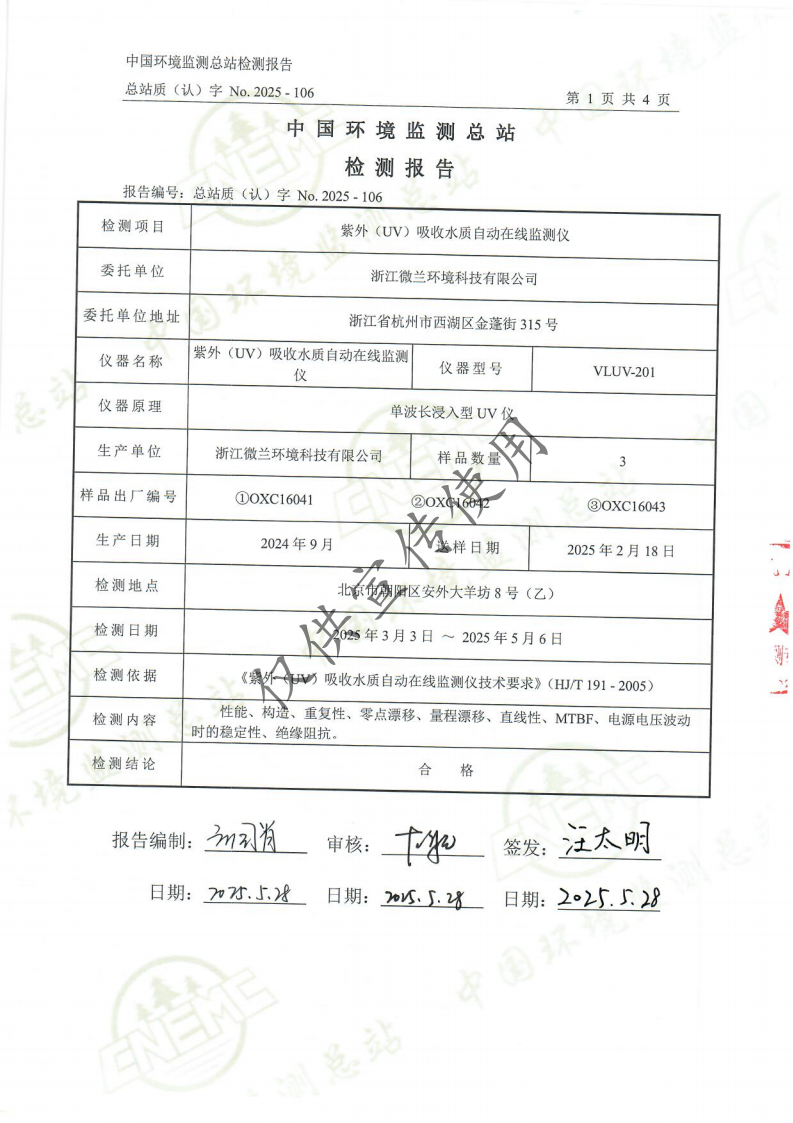 中国环境监测总站检测报告
总站质（认）字 No. 2025 - 106
第 1 页 共 4 页
中国环境监测总站
检测报告
报告编号：总站质（认）字 No. 2025 - 106
检测项目 紫外（UV）吸收水质自动在线监测仪
委托单位 浙江微兰环境科技有限公司
委托单位地址 浙江省杭州市西湖区金蓬街 315 号
仪器名称 紫外（UV）吸收水质自动在线监测
仪
仪器型号 VLUV-201
仪器原理 单波长浸入型 UV 仪
生产单位 浙江微兰环境科技有限公司 样品数量 3
样品出厂编号 ①OXC16041 ②OXC16042 ③OXC16043
生产日期 2024 年 9 月 送样日期 2025 年 2 月 18 日
检测地点 北京市朝阳区安外大羊坊 8 号（乙）
检测日期 2025 年 3 月 3 日 ～ 2025 年 5 月 6 日
检测依据 《紫外（UV）吸收水质自动在线监测仪技术要求》（HJ/T 191 - 2005）
检测内容 性能、构造、重复性、零点漂移、量程漂移、直线性、MTBF、电源电压波动
时的稳定性、绝缘阻抗。
检测结论 合 格
仅供宣传使用
报告编制： 审核： 签发：汪太明
日期：2025.5.28 日期：2025.5.28 日期：2025.5.28
CNEMC
中国环境监测总站